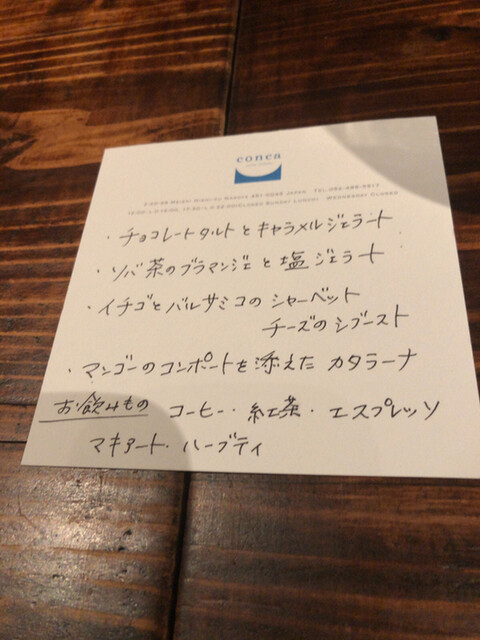 conca
・チョコレートタルトとキャラメルジェラート
・ソバ茶のブラマンジェと塩ジェラート
・イチゴとバルサミコのシャーベット
チーズのシブースト
・マンゴーのコンポートを添えた カタラーナ
お飲みもの コーヒー・紅茶・エスプレッソ
マキアート・ハーブティ